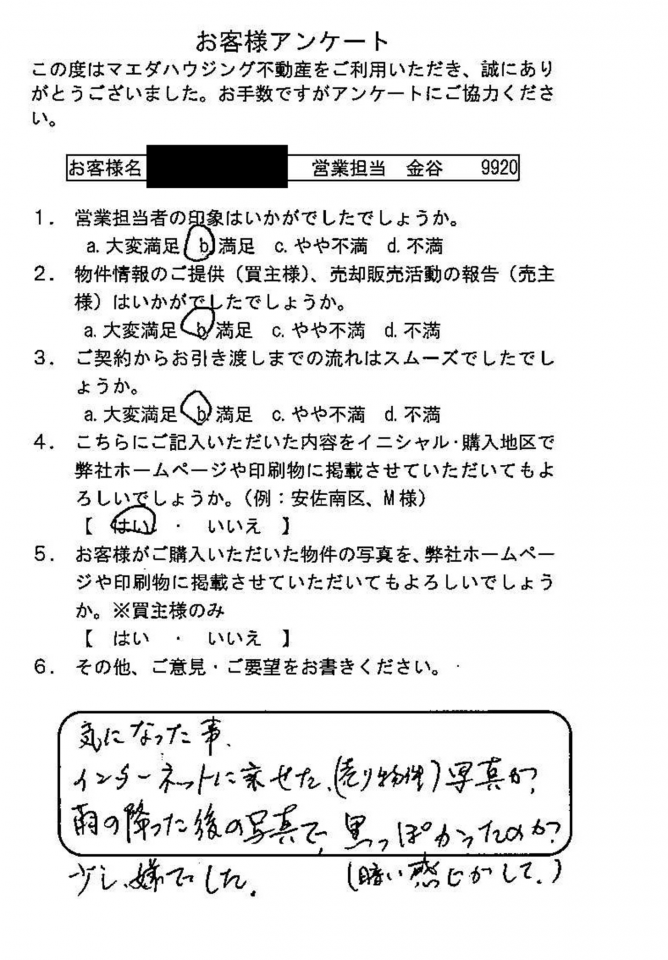 お客様アンケート
この度はマエダハウジング不動産をご利用いただき、誠にあり
がとうございました。お手数ですがアンケートにご協力くださ
い。
お客様名 営業担当 金谷 9920
1. 営業担当者の印象はいかがでしたでしょうか。
a.大変満足 b.満足 c.やや不満 d.不満
2. 物件情報のご提供（買主様）、売却販売活動の報告（売主
様）はいかがでしたでしょうか。
a.大変満足 b.満足 c.やや不満 d.不満
3. ご契約からお引き渡しまでの流れはスムーズでしたでし
ょうか。
a.大変満足 b.満足 c.やや不満 d.不満
4. こちらにご記入いただいた内容をイニシャル・購入地区で
弊社ホームページや印刷物に掲載させていただいてもよ
ろしいでしょうか。（例：安佐南区、M様）
【 はい ・ いいえ 】
5. お客様がご購入いただいた物件の写真を、弊社ホームペー
ジや印刷物に掲載させていただいてもよろしいでしょう
か。※買主様のみ
【 はい ・ いいえ 】
6. その他、ご意見・ご要望をお書きください。
気になった事、
インターネットに乗せた、（売り物件）写真が、
雨の降った後の写真で、黒っぽかったのが、
少し、嫌でした。 （暗い感じがして。）